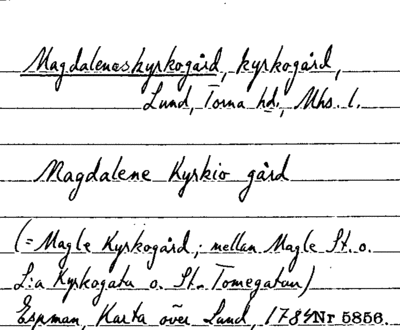 Magdalenæskyrkogård, kyrkogård,
Lund, Torna hd., Mhs. l.
Magdalene Kyrkio gård
(= Magle Kyrkogård; mellan Magle St. o.
L:a Kyrkogata o. St. Tomegatan)
Espman, Karta över Lund, 1784 Nr 5856.